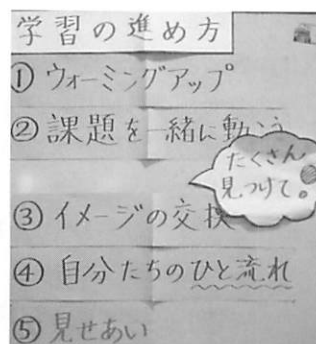 学習の進め方
① ウォーミングアップ
② 課題を一緒に動こう
たくさん
見つけて。
③ イメージの交換
④ 自分たちのひと流れ
⑤ 見せあい